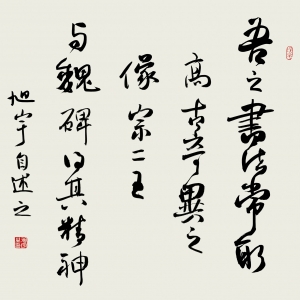 吾之書法常取
高古奇異之
像宗二王
与魏碑得其精神
旭宇自述之